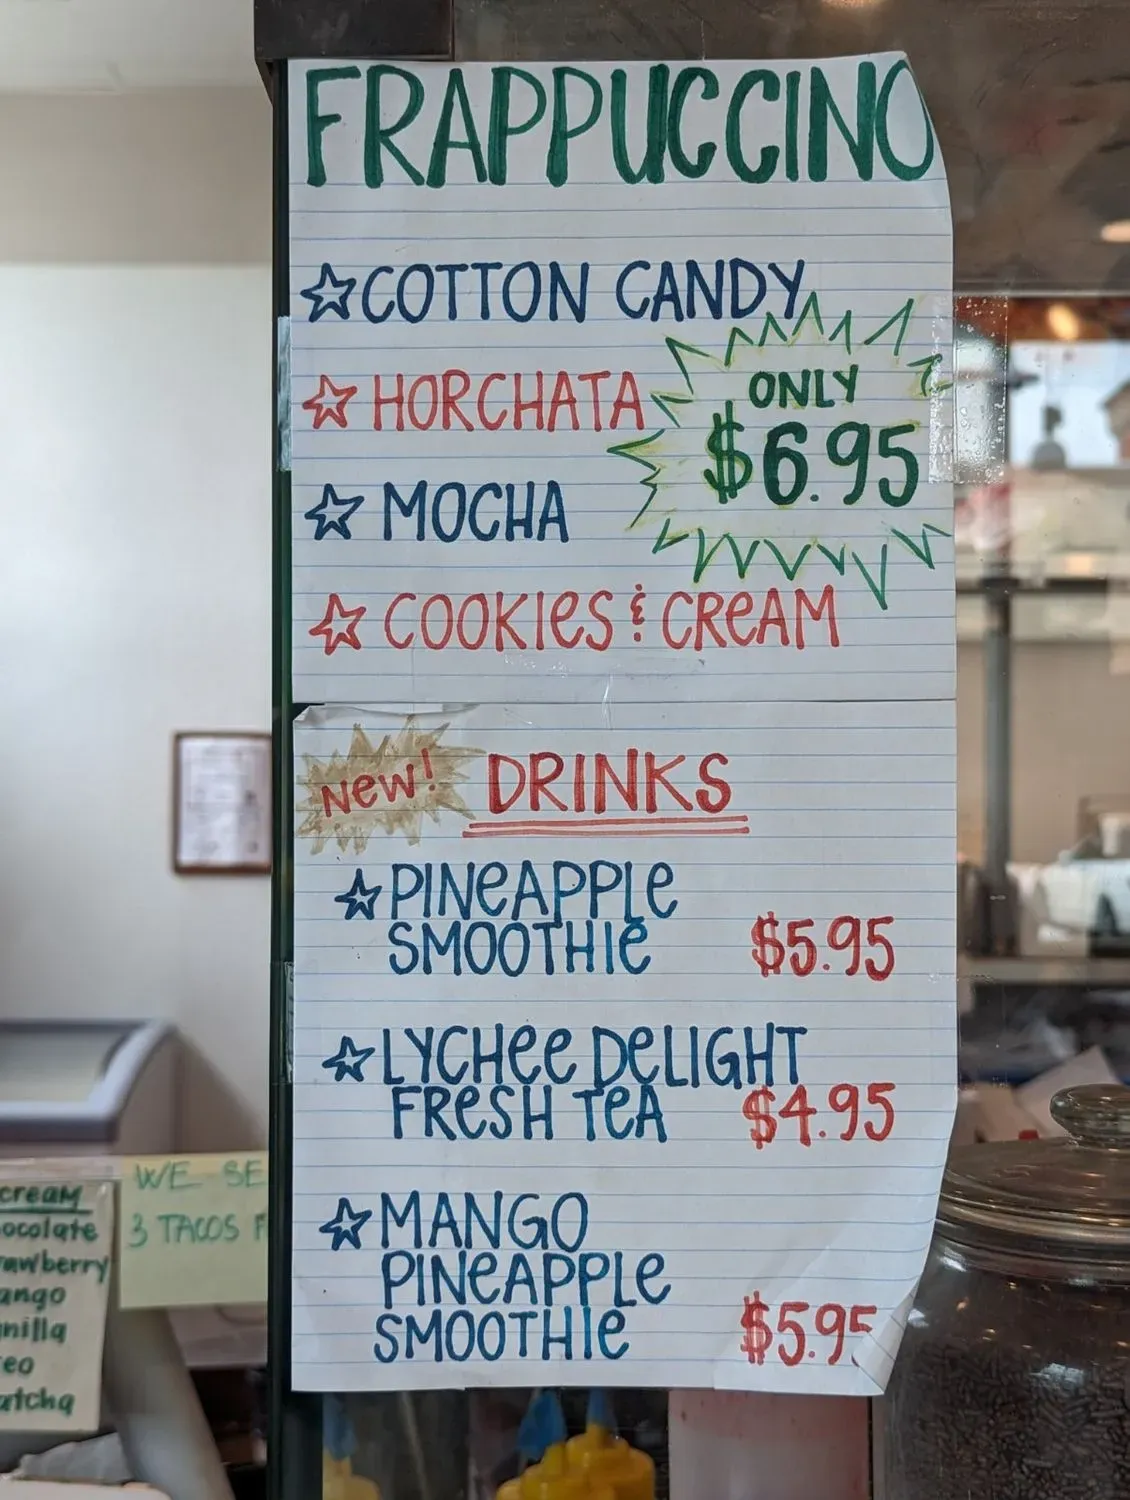 FRAPPUCCINO
COTTON CANDY
HORCHATA
ONLY
$6.95
MOCHA
COOKIES & CREAM
NEW! DRINKS
PINEAPPLE
SMOOTHIE $5.95
LYCHEE DELIGHT
FRESH TEA $4.95
MANGO
PINEAPPLE
SMOOTHIE $5.95
WE SE
3 TACOS F
cream
ocolate
rawberry
ango
nilla
reo
atcha